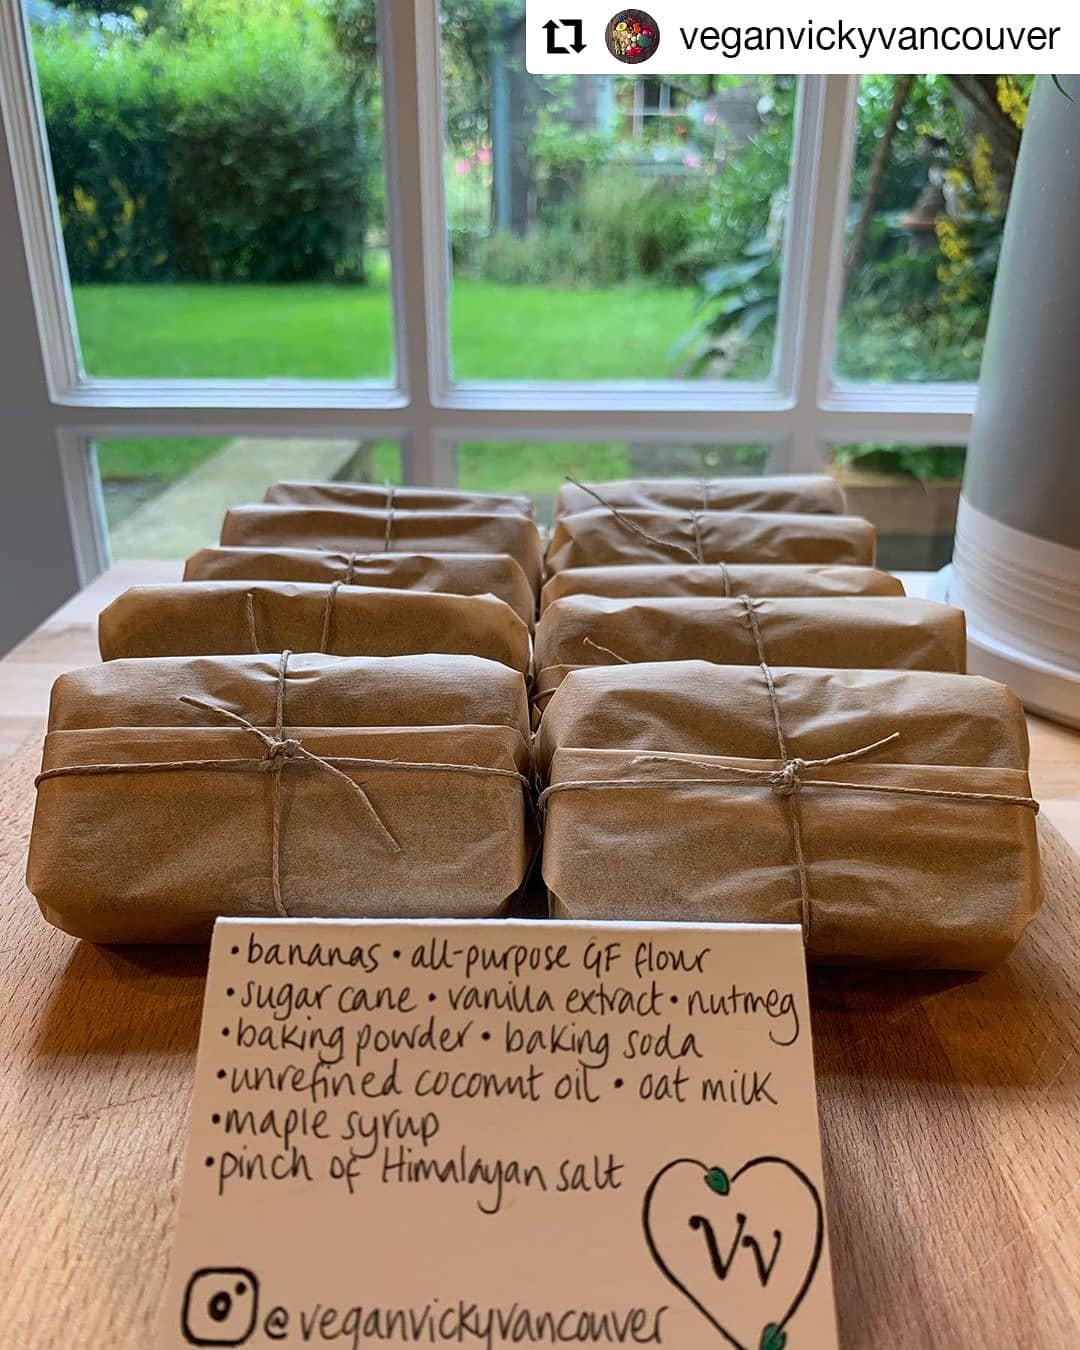 veganvickyvancouver
• bananas • all-purpose GF flour
• sugar cane • vanilla extract • nutmeg
• baking powder • baking soda
• unrefined coconut oil • oat milk
• maple syrup
• pinch of Himalayan salt
Vv
@veganvickyvancouver